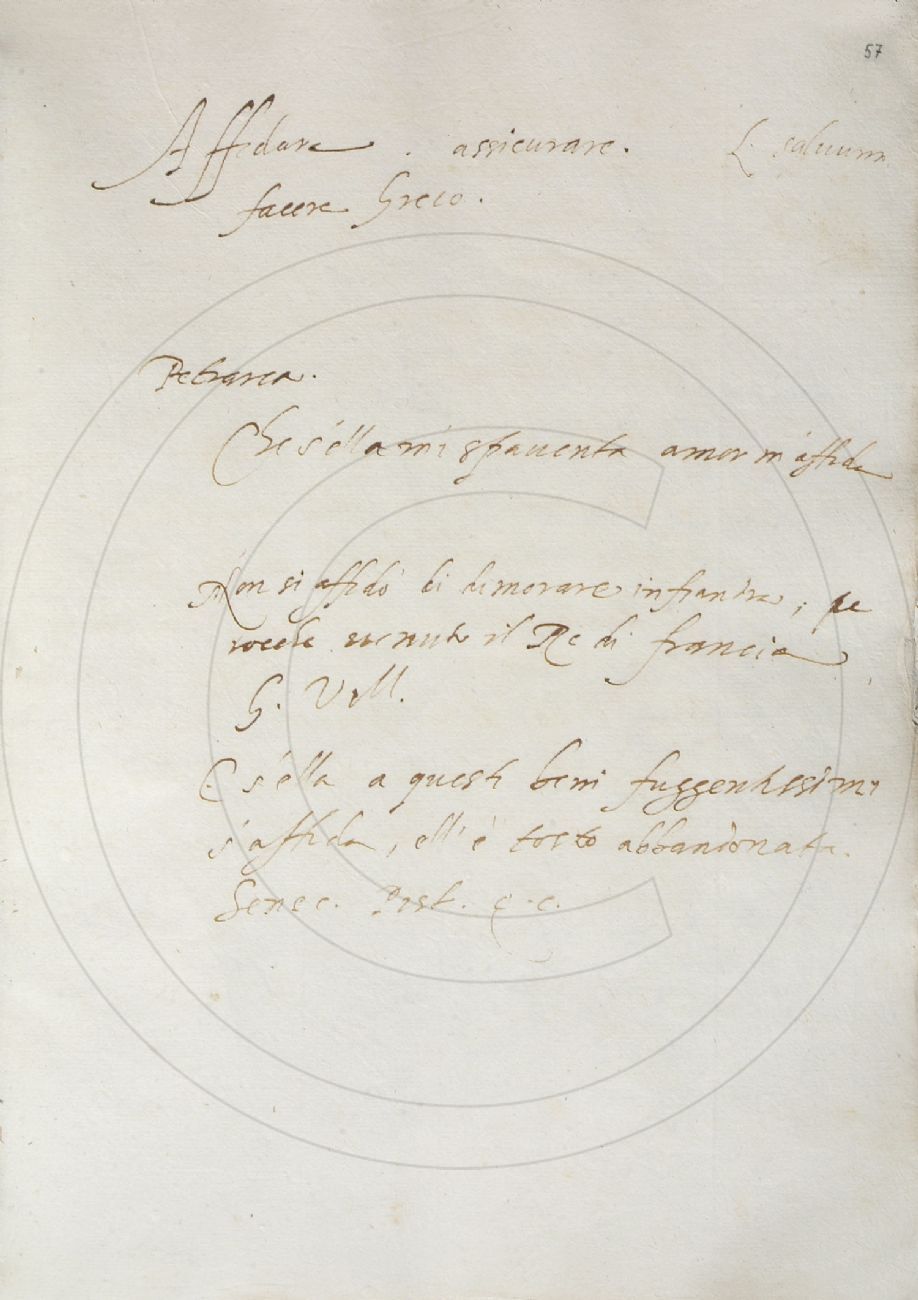 57
Affidare . assicurare. L. saluum
facere Greco.
Petrarca.
Che s'ella mi spauenta amor m'affida
Non si affidò di dimorare in fiandra, pe
roche uenne il Re di francia
G. Vill.
E s'ella a questi beni fuggentissimi
s'affida, ell'è tosto abbandonata.
Senec. Pist.